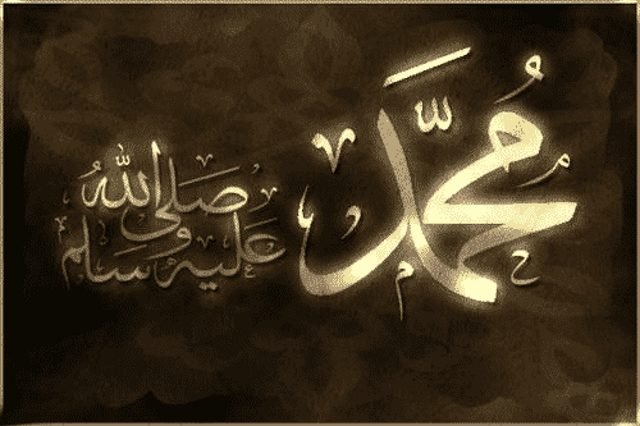 مُحَمَّد
صلى الله
عليه وسلم